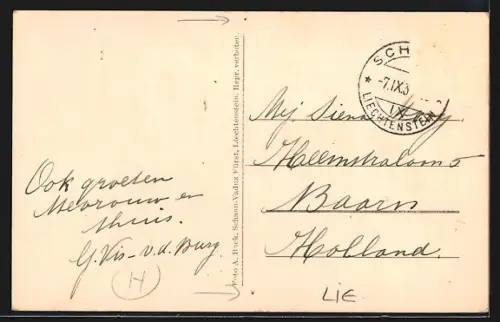 Ook groeten
Mevrouw en
thuis.
G. Vis - v.d. Burg.
H
Foto A. Buck, Schaan-Vaduz Fürst. Liechtenstein. Repr. verboten.
SCH
-7.IX.3
IX
LIECHTENSTEIN
Mej Siena
Heemstralaan 5
Baarn
Holland.
LIE